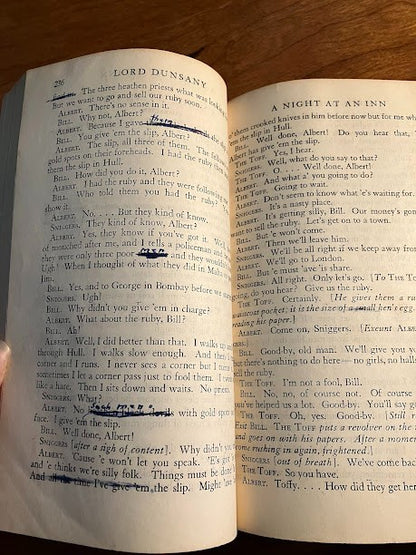 236
LORD DUNSANY
The three heathen priests what was looking
But we want to go and sell our ruby soon.
ALBERT. There's no sense in it.
BILL. Why not, Albert?
ALBERT. Because I gave the slip in
BILL. You give 'em the slip, Albert?
ALBERT. The slip, all three of them. The fellows
gold spots on their foreheads. I had the ruby then
them the slip in Hull.
BILL. How did you do it, Albert?
ALBERT. I had the ruby and they were following me
BILL. Who told them you had the ruby?
show it.
ALBERT. No. . . . But they kind of know.
SNIGGERS. They kind of know, Albert?
ALBERT. Yes, they know if you've got it.
of motched after me, and I tells a policeman and
they were only three poor and they would
Ugh! When I thought of what they did in Malta
Jim.
BILL. Yes, and to George in Bombay before we
SNIGGERS. Ugh!
BILL. Why didn't you give 'em in charge?
ALBERT. What about the ruby, Bill?
BILL. Ah!
ALBERT. Well, I did better than that. I walks up
through Hull. I walks slow enough. And then I
corner and I runs. I never sees a corner but I
sometimes I let a corner pass just to fool them. I
like a hare. Then I sits down and waits. No
SNIGGERS. What?
ALBERT. No with gold spots
face. I give 'em the slip.
BILL. Well done, Albert!
SNIGGERS [after a sigh of content]. Why didn't you
ALBERT. 'Cause 'e won't let you speak. 'E's got
and 'e thinks we're silly folk. Things must be done
And all the time I've give 'em the slip. Might
A NIGHT AT AN INN
them crooked knives in him before now but for me
'em the slip in Hull.
BILL. Well done, Albert! Do you hear that,
Albert has give 'em the slip.
THE TOFF. Yes, I hear.
SNIGGERS. Well, what do you say to that?
THE TOFF. O. . . . Well done, Albert!
ALBERT. And what a' you going to do?
THE TOFF. Going to wait.
ALBERT. Don't seem to know what 'e's waiting for.
SNIGGERS. It's a nasty place.
ALBERT. It's getting silly, Bill. Our money's gone
want to sell the ruby. Let's get on to a town.
BILL. But 'e won't come.
ALBERT. Then we'll leave him.
SNIGGERS. We'll be all right if we keep away from
ALBERT. We'll go to London.
BILL. But 'e must 'ave 'is share.
SNIGGERS. All right. Only let's go. [To THE
going, do you hear? Give us the ruby.
THE TOFF. Certainly. [He gives them a
waistcoat pocket; it is the size of a small hen's egg.
reading his paper.]
ALBERT. Come on, Sniggers. [Exeunt ALBERT
SNIGGERS.
BILL. Good-by, old man. We'll give you
but there's nothing to do here—no girls, no halls
the ruby.
THE TOFF. I'm not a fool, Bill.
BILL. No, no, of course not. Of course
helped us a lot. Good-by. You'll say
THE TOFF. Oh, yes. Good-by. [Still
Exit BILL. THE TOFF puts a revolver on the
and goes on with his papers. After a moment
come rushing in again, frightened.]
SNIGGERS [out of breath]. We've come back
THE TOFF. So you have.
ALBERT. Toffy. . . . How did they get here